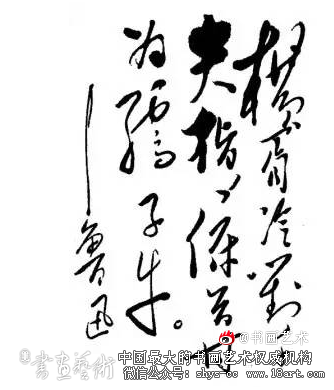 横眉冷对千
夫指、俯首甘
为孺子牛。
——鲁迅
@书画艺术
書畫藝術
中国最大的书画艺术权威机构
微信公众号：shys-oo www.18art.com